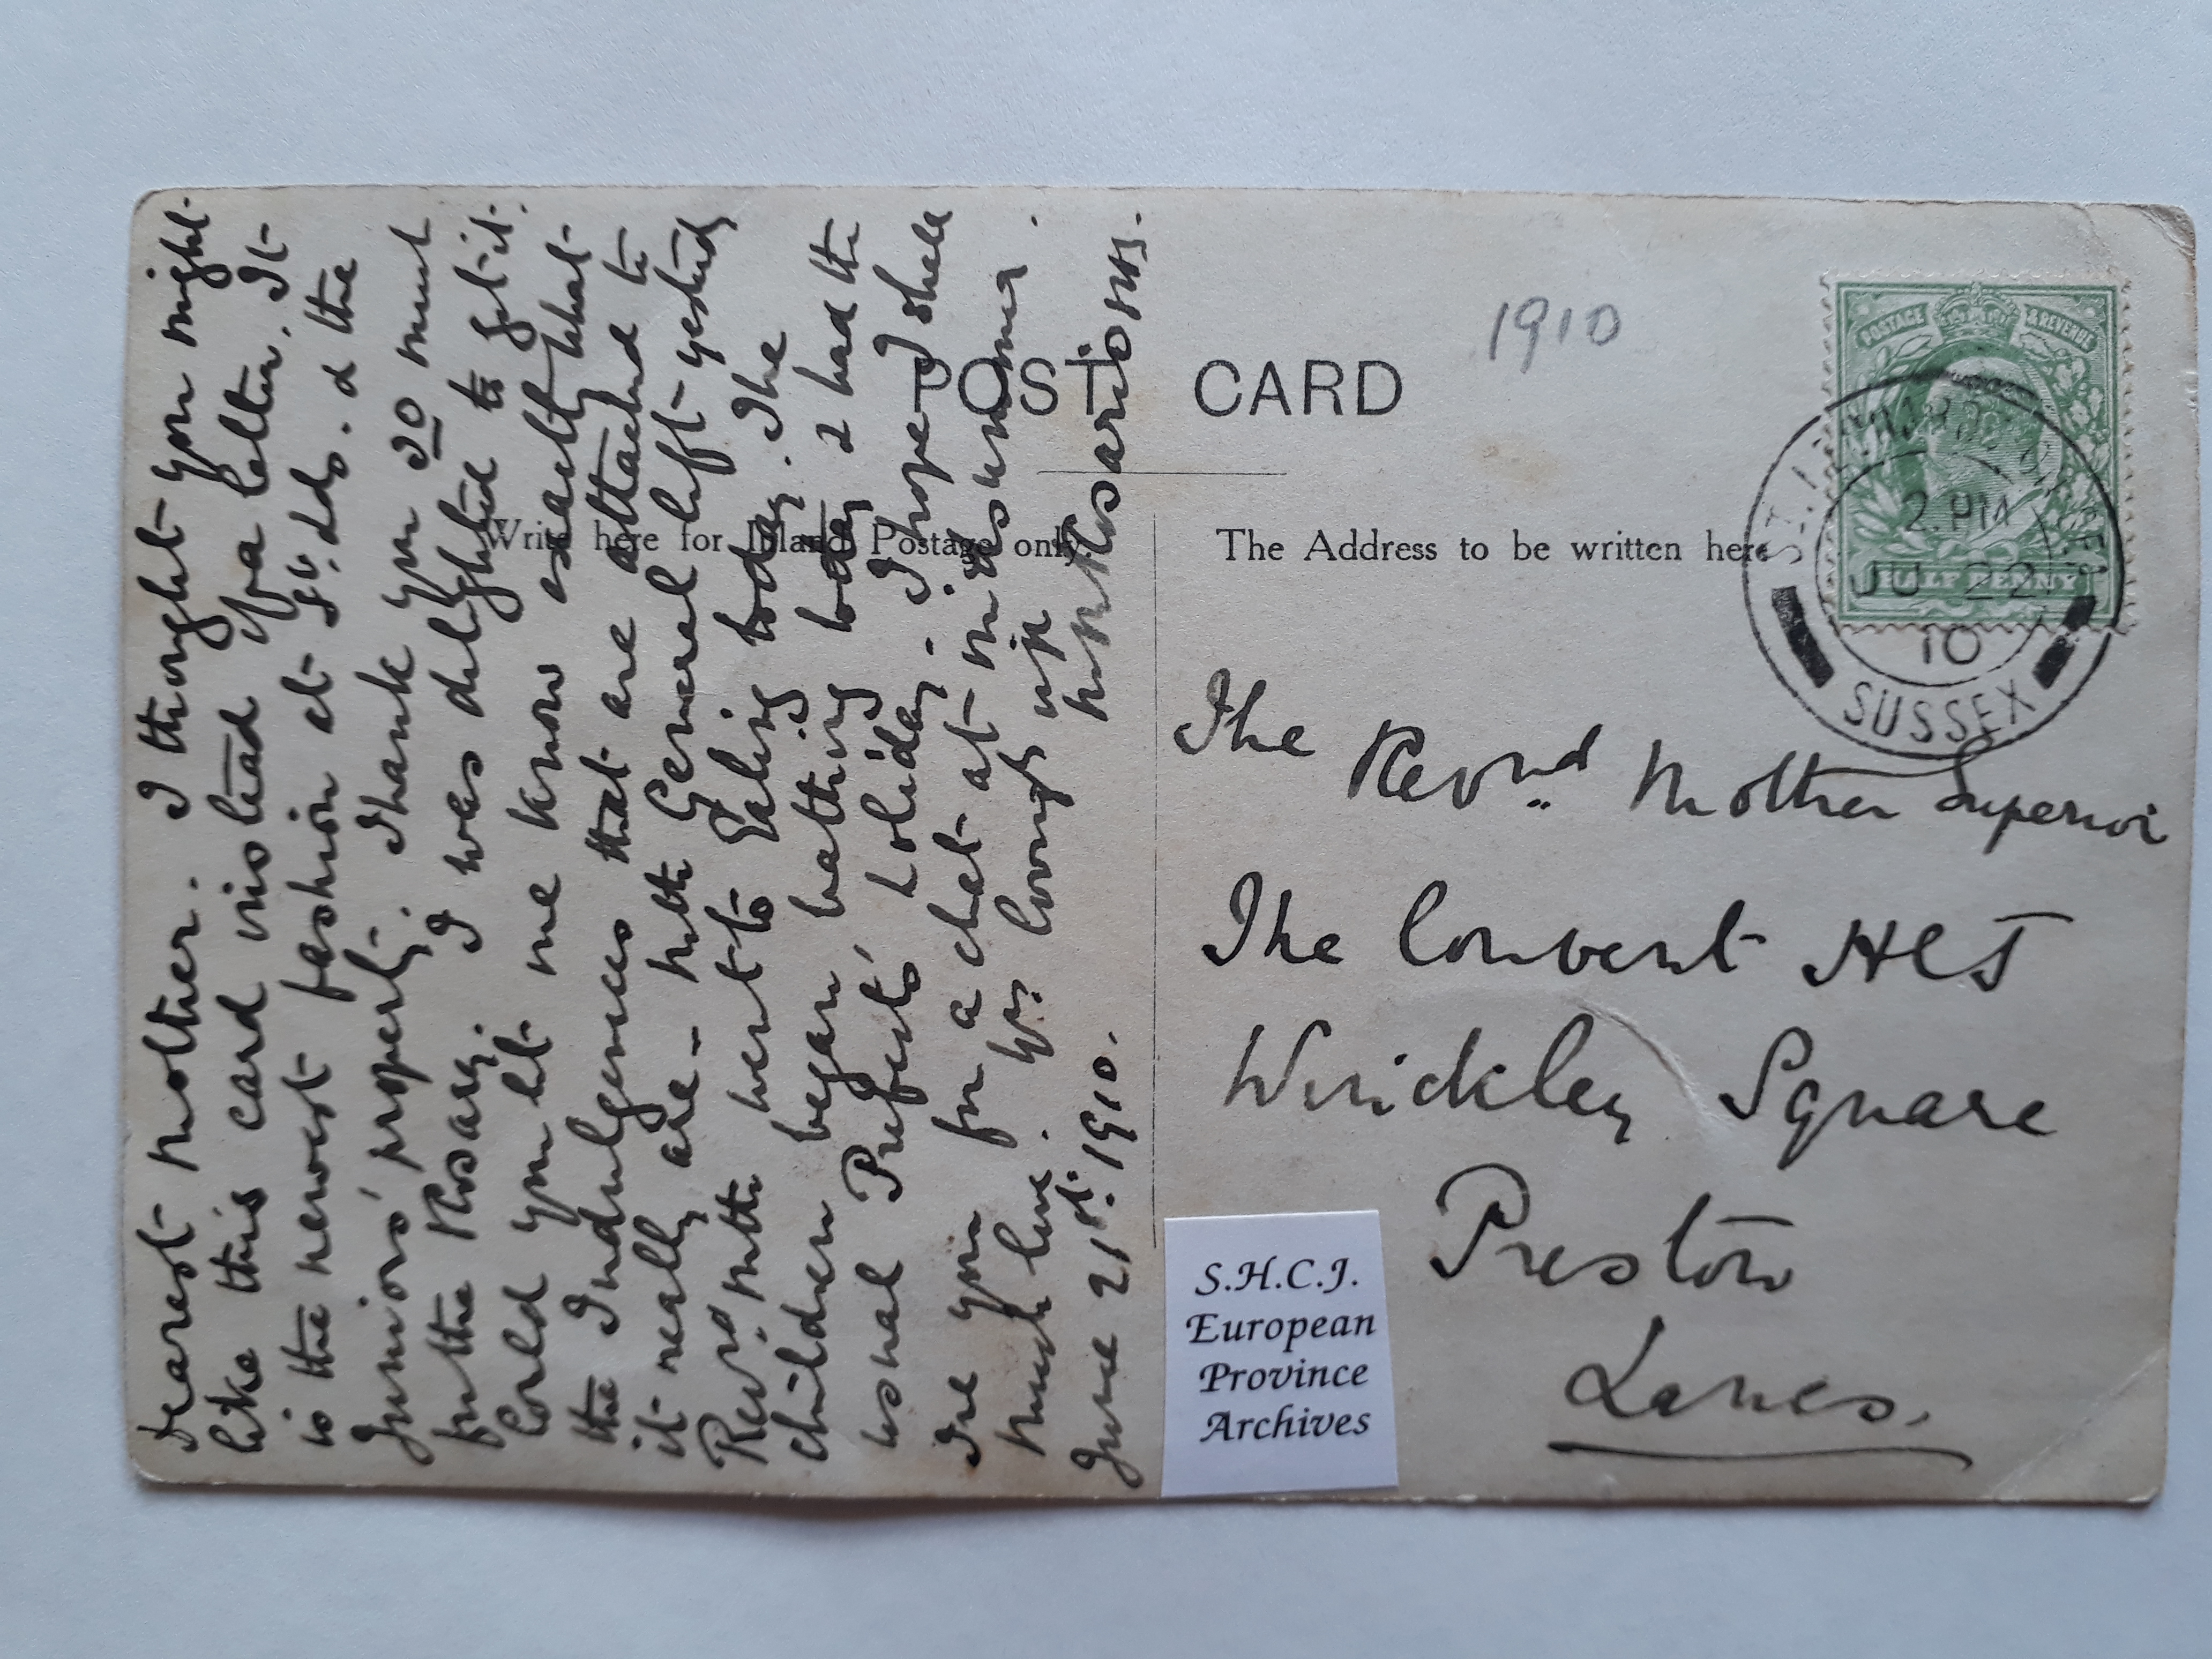 POST CARD
1910
Write here for Inland Postage only.
The Address to be written here
POSTAGE & REVENUE
HALF PENNY
ST. LEONARDS
2. PM
JU 22
10
SUSSEX
Dearest Mother. I thought you might
like this card instead of a letter. It
is the newest fashion at St. Lds. & the
Juniors' property. Thank you so much
for the Rosary. I was delighted to get it.
Could you let me know exactly what
the Indulgences that are attached to
it really are – Mth General left yesterday
Revd. Mth went to Ealing today. The
children began bathing today & had the
usual Prefects' holiday. I hope I shall
see you for a chat at midsummer.
Much love. Yr. loving
June 21st. 1910.
The Revnd Mother Superior
The Convent HCJ
Winckley Square
Preston
Lancs.
S.H.C.J.
European
Province
Archives